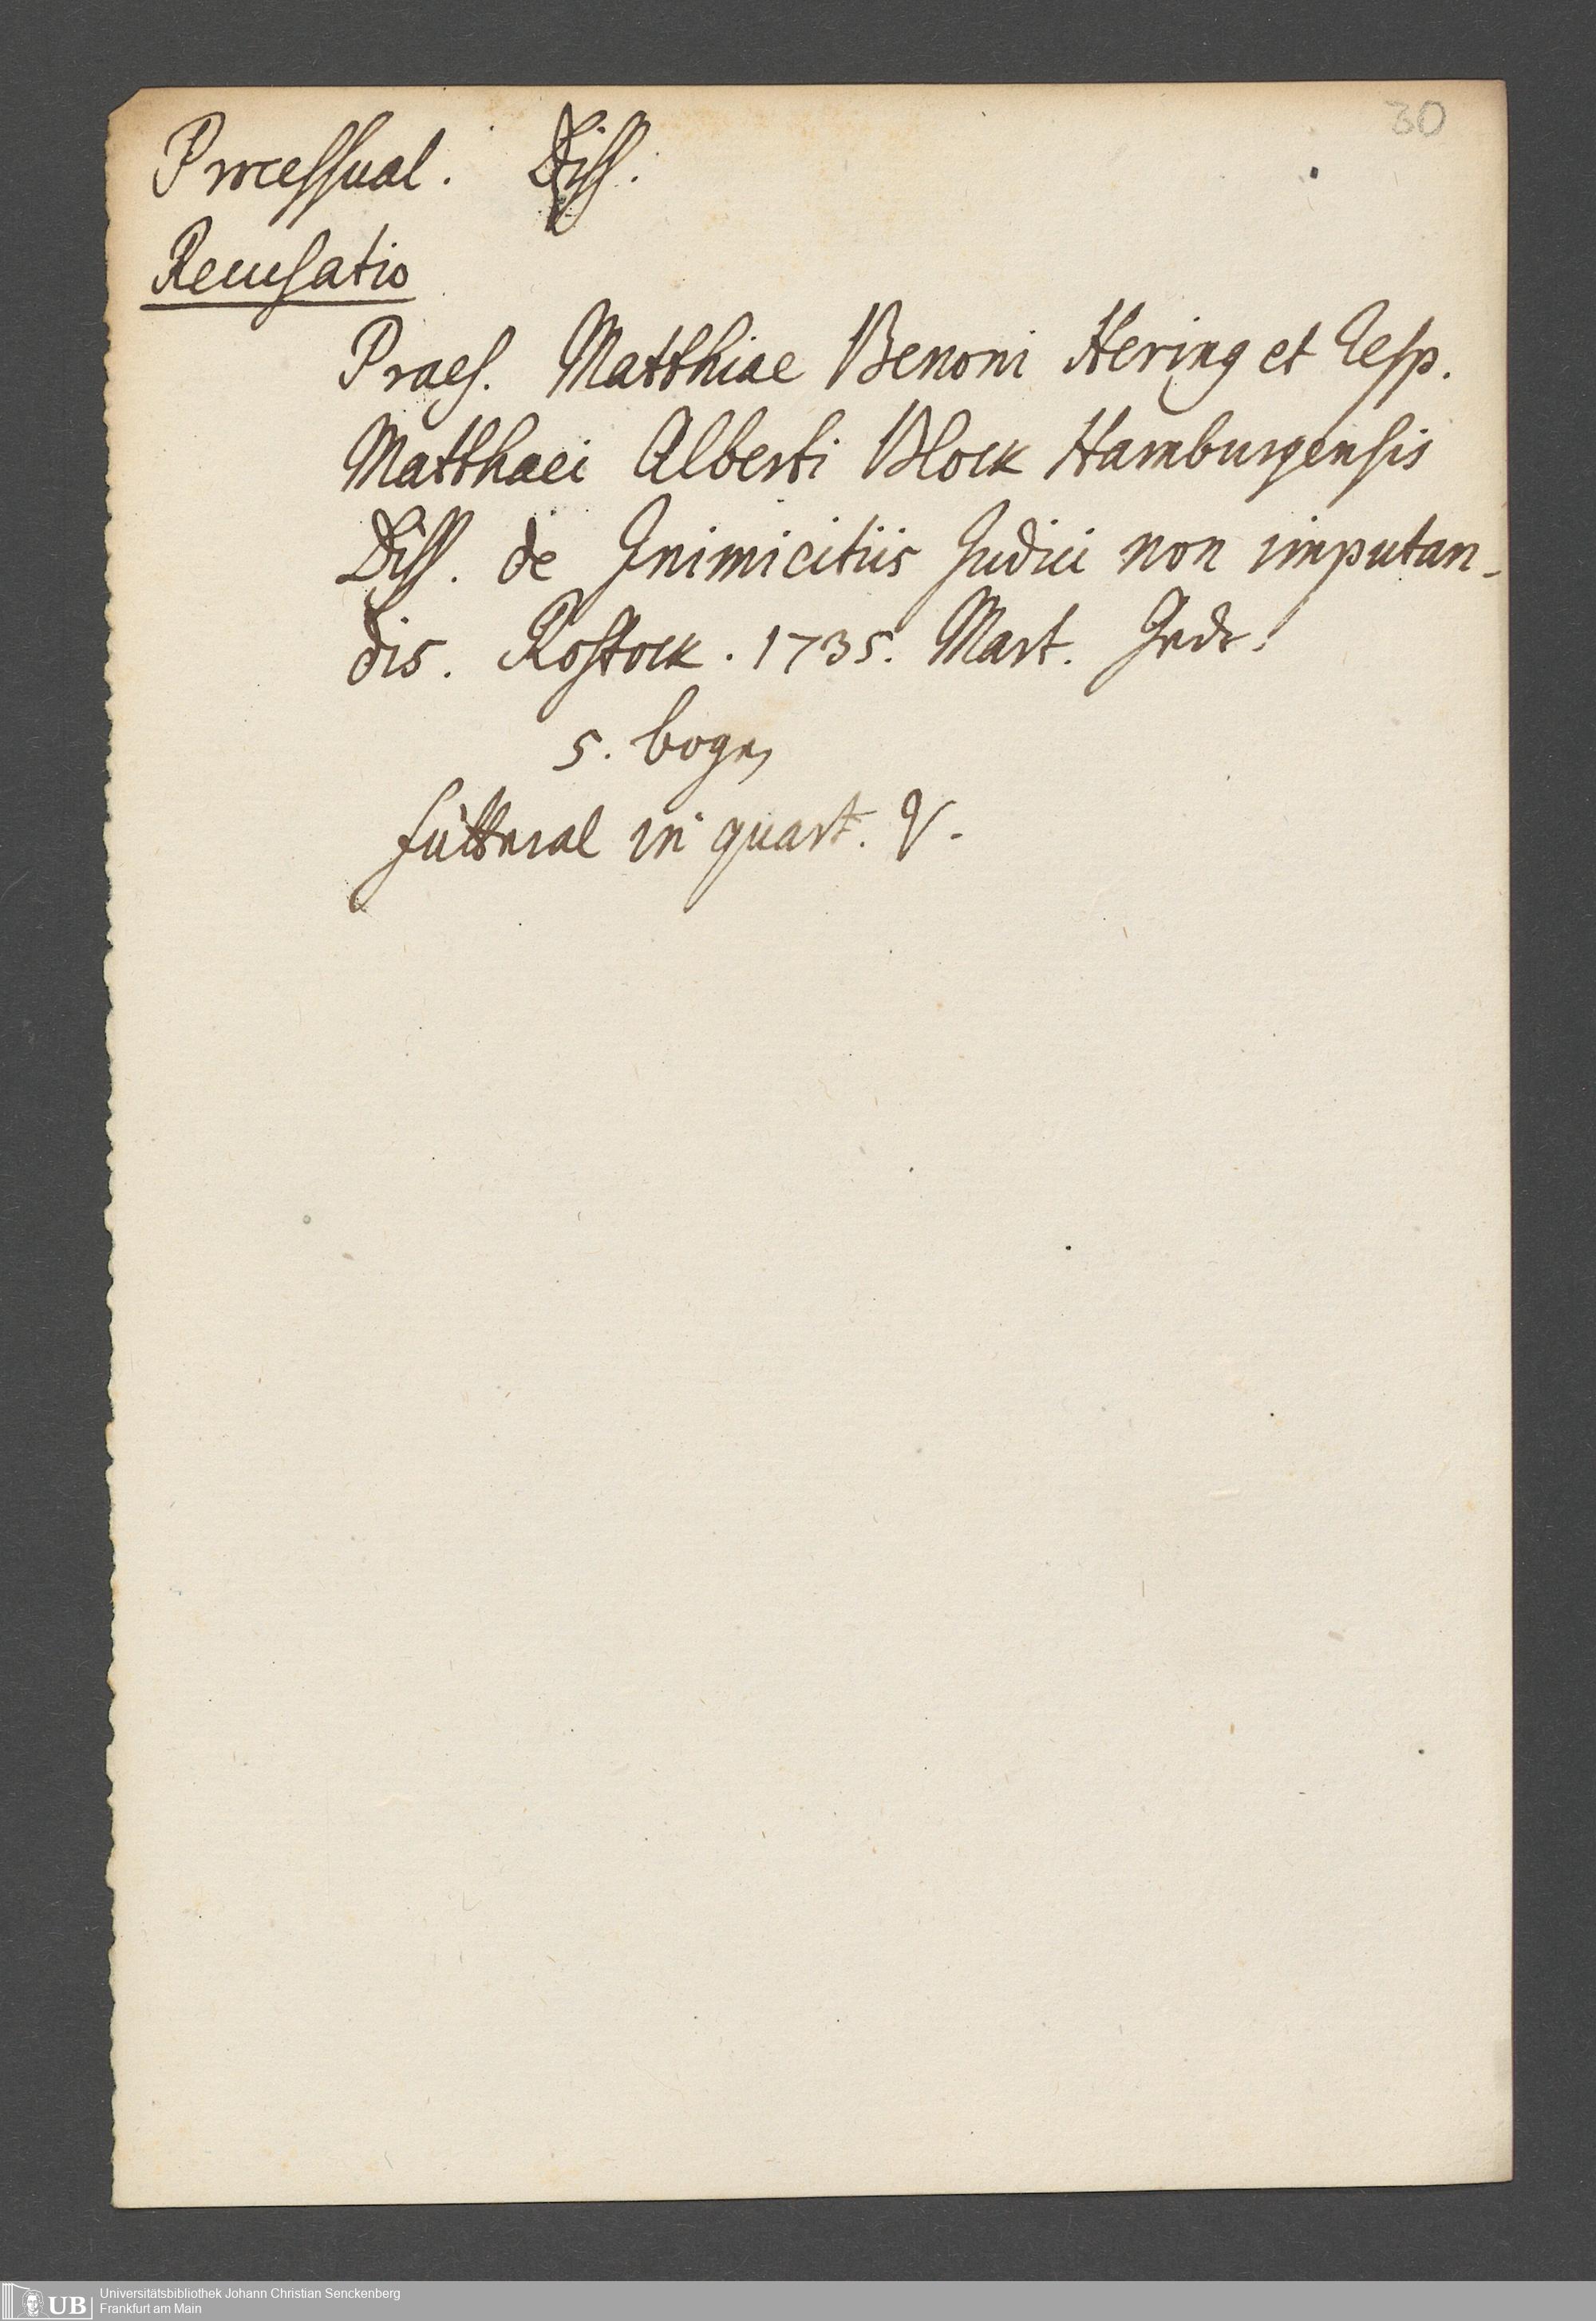 30
Processual. Diss.
Recusatio
Praes. Matthiae Benoni Hering et Resp.
Matthaei Alberti Block Hamburgensis
Diss. de Inimicitiis Judici non imputan-
dis. Rostock. 1735. Mart.
5. bogen
futteral in quart. V.
Universitätsbibliothek Johann Christian Senckenberg
UB Frankfurt am Main